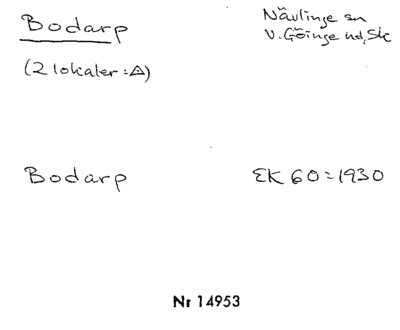 Bodarp
Nävlinge sn
V. Göinge hd, Sk
(2 lokaler :A)
Bodarp
EK 60 = 1930
Nr 14953